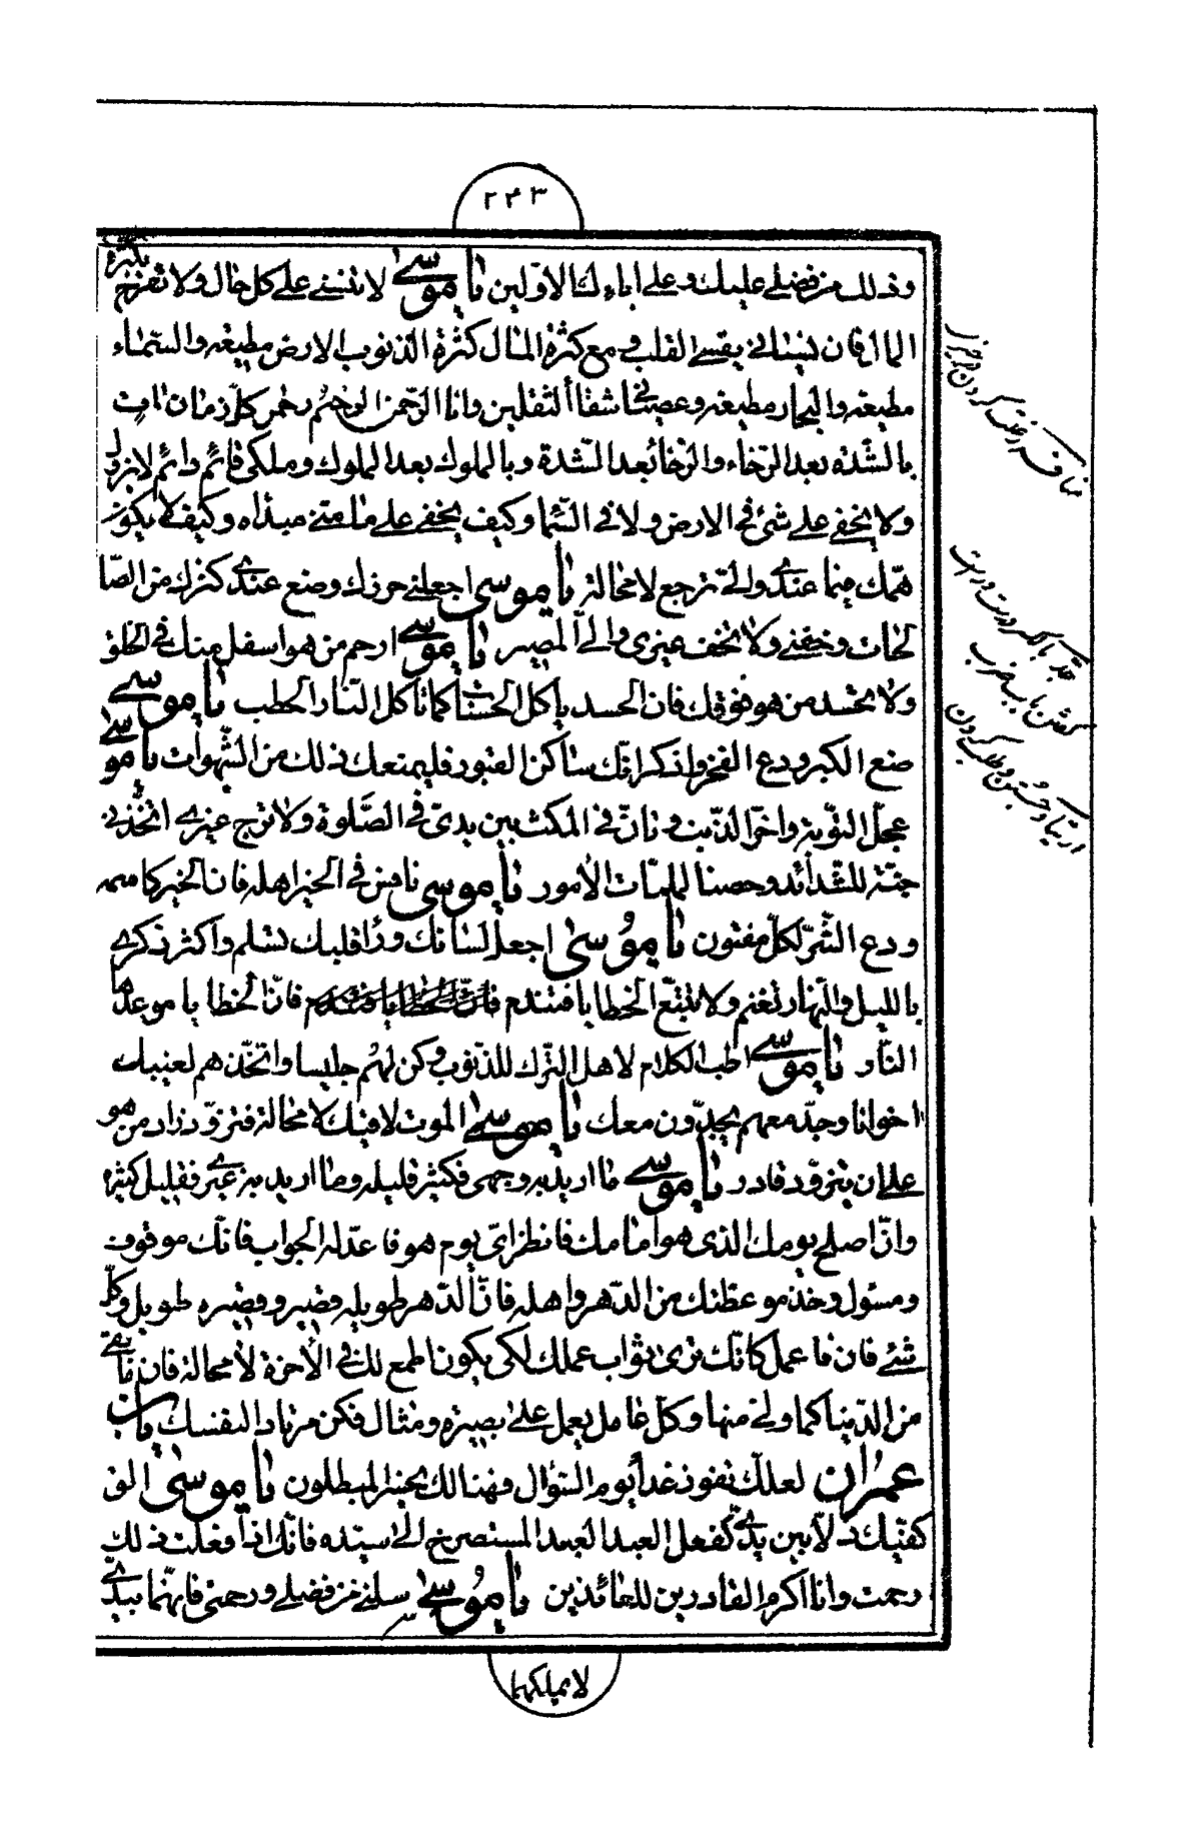 ٢٤٣
وذلك من فضلی علیك وعلی اباءك الاوّلین یا موسی لا تنسنی علی كل حال ولا تفرح بكثرة
المال فان نسیانی یقسی القلب و مع كثرة المال كثرة الذنوب الارض مطیعة والسّماء
مطیعة والبحار مطیعة وعصیانی شقاء الثقلین وانا الرّحمن الرحیم رحمن كلّ زمان اتی
بالشّدة بعد الرّخاء والرّخاء بعد الشدة وبالملوك بعد الملوك وملكی قائم دائم لا یزول
ولا یخفی علی شیٔ فی الارض ولا فی السّماء وكیف یخفی علی ما منی مبدأه وكیف لا یكون
همّك فیما عندی والیّ ترجع لا محالة یا موسی اجعلنی حرزك وضع عندی كنزك من الصّا
لحات وخفنی ولا تخف غیری والیّ المصیر یا موسی ارحم من هو اسفل منك فی الخلق
ولا تحسد من هو فوقك فان الحسد یاكل الحسنات كما تاكل النّار الحطب یا موسی
ضع الكبر ودع الفخر واذكر انّك ساكن القبور فلیمنعك ذلك من الشّهوات یا موسی
عجّل التّوبة واخّر الذّنب وتانّ فی المكث بین یدیّ فی الصّلوة ولا ترج غیری اتّخذنی
جنّة للشّدائد وحصنا لملمّات الأمور یا موسی نافس فی الخیر اهله فان الخیر كاسمه
ودع الشّرّ لكلّ مفتون یا موسی اجعل لسانك وراء قلبك تسلم واكثر ذكری
باللیل والنّهار تغنم ولا تتّبع الخطایا فتندم فانّ الخطایا فتندم فانّ الخطایا موعدها
النّار یا موسی اطب الكلام لاهل التّرك للذّنوب وكن لهم جلیسا واتّخذهم لغیبك
اخوانا وجدّ معهم یجدّون معك یا موسی الموت لاقیك لا محالة فتزوّد زاد من هو
علی ان یتزوّد قادر یا موسی ما ارید به وجهی فكثیر قلیله وما ارید به غیری فقلیل كثیره
وانّ اصلح یومك الذی هو امامك فانظر ایّ یوم هو فاعدّ له الجواب فانّك موقوف
ومسئول وخذ موعظتك من الدّهر واهله فانّ الدّهر طویله قصیر وقصیره طویل وكلّ
شیٔ فان فاعمل كانّك تری ثواب عملك لكی یكون اطمع لك فی الأخرة لا محالة فان ما بقی
من الدّنیا كما ولّی منها وكلّ عامل یعمل علی بصیرة ومثال فكن مرتادا لنفسك یابن
عمران لعلّك تفوز غدا یوم السّؤال فهنالك یخسر المبطلون یا موسی الق
كفّیك ذلاّ بین یدیّ كفعل العبد المستصرخ الی سیّده فانّك اذا فعلت ذلك
رحمت وانا اكرم القادرین للعائذین یا موسی سلنی من فضلی ورحمتی فانّهما بیدی
لا یملكهما